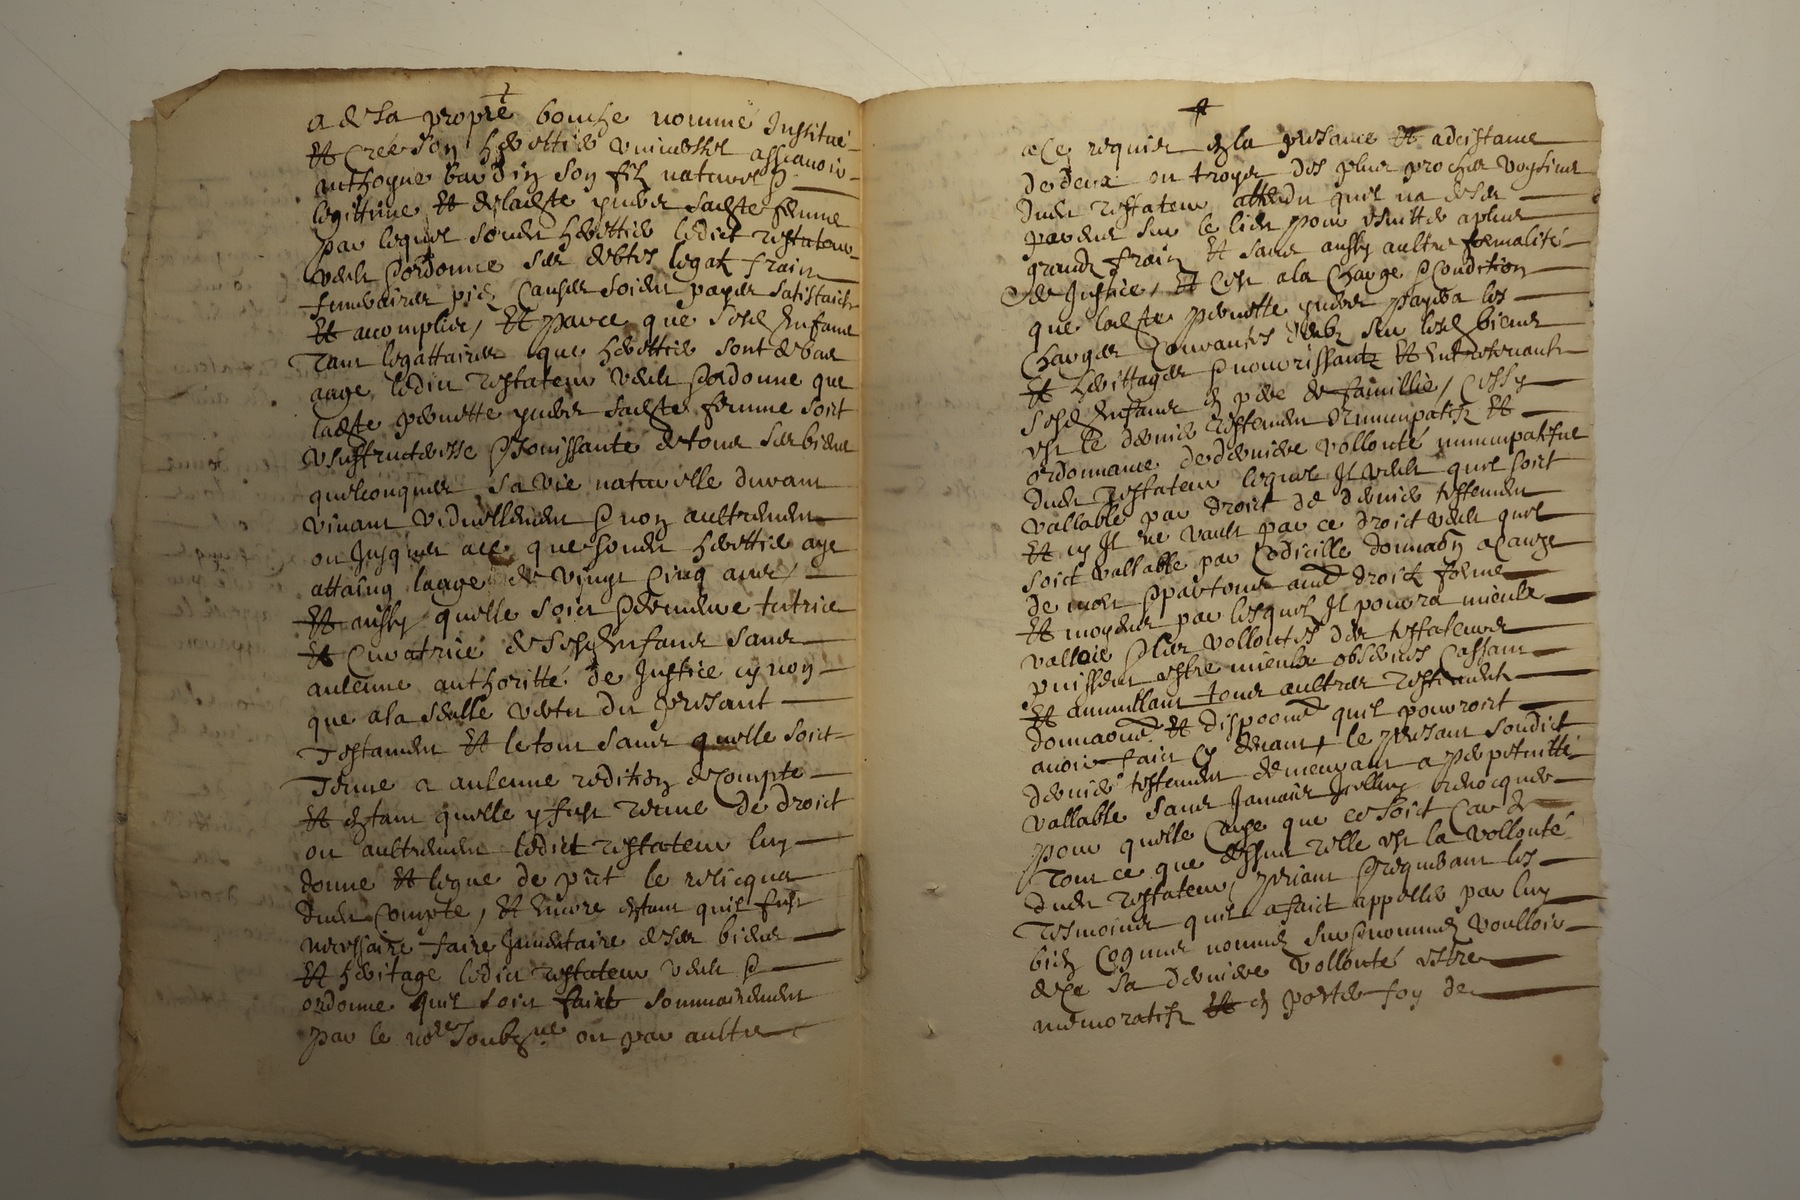 a de sa propre bouche nommé Institué
Et Créé son herettier universel assçavoir
Anthoyne bardin son filz naturel &
legittime Et de ladicte ymber sadicte femme
par lequel sondit herettier ledict testateur
veult & ordonne ses debtes legatz fraix
funeraires pies causes soient payes satisfaictz
Et acomplies, Et parce que sesd enfans
Tant legattaires que herettier sont de bas
aage, ledict testateur veult & ordonne que
ladicte pernette ymber sadicte femme soict
usufructeresse & Jouissante de tous ses biens
quelconques sa vie naturelle durant
vivant viduellement & non aultrement
ou Jusques a ce que sondit herettier aye
attaing laage de vingt cinq ans,
Et aussy quelle soict & demeure tutrice
Et curatrice de sesd enfans sans
aulcune authoritté de Justice cy non
que a la seulle vertu du presant
Testament Et le tout sans quelle soict
Tenue a aulcune redition de compte
Et estant quelle y fust tenue de droict
ou aultrement ledict testateur luy
donne Et legue de put le relicqua
dudit compte, Et encore estant quil fust
necessaire faire Jnventaire de ses biens
Et heritage ledict testateur veult &
ordonne quil soict faict sommairement
par le nore soubzne ou par aultre
a ce requis en la presance Et adcistance
de deux ou troys des plus proches voysins
dudit testateur attendu quil na de ses
parens sur le lieu pour esvitter a plus
grandz fraiz Et sans aussy aultre formalité
de Justice, Et cest a la charge & condition
que ladicte pernette ymber payera les
charges & survantes deubz sur lesd biens
Et herittages & nourrissantz Et entretenantz
sesd enfans en pere de famillie, Cecy
est le dernier testement Nunnpatif Et
ordonnance de derniere vollonté nunnpatifve
dudit testateur lequel Jl veult quil soict
vallable par droict de dernier testement
Et cy Jl ne vault par ce droict veult quil
soict vallable par codicille donnaon a cause
de mort & par tous aues droictz forme
Et moyens par lesquelz Jl pourra mieulx
valloir & les vollontes des testateurs
puissent estre mieulx observes cassant
Et annullant tous aultres testementz
donnaons Et dispoons quil pourroict
avoir faict cy devant, le presant sondict
dernier testement demeurant a perpetuitté
vallable sans Jamais Jcelluy revocquer
pour quelle cause que ce soict Car
Tout ce que dessus telle est la vollonté
dudit testateur, priant & requerant les
Tesmoins quil a faict appeller par luy
bien cognus nommez sur& nommez voulloir
de ce sa derniere vollonté estre
memoratifz Et en porter foy de